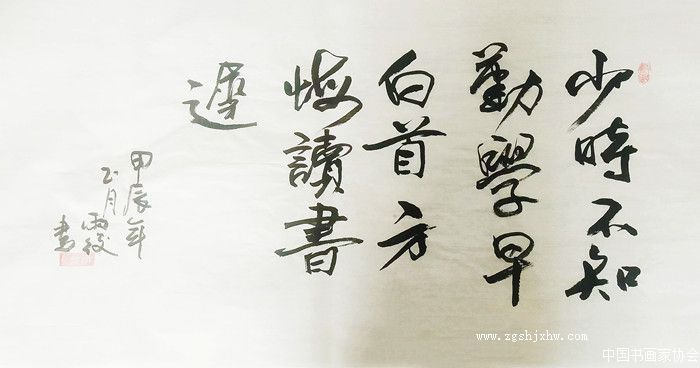 少時不知
勤學早
白首方
悔讀書
遲
甲辰年
正月雨後
書
www.zgshjxhw.com
中国书画家协会